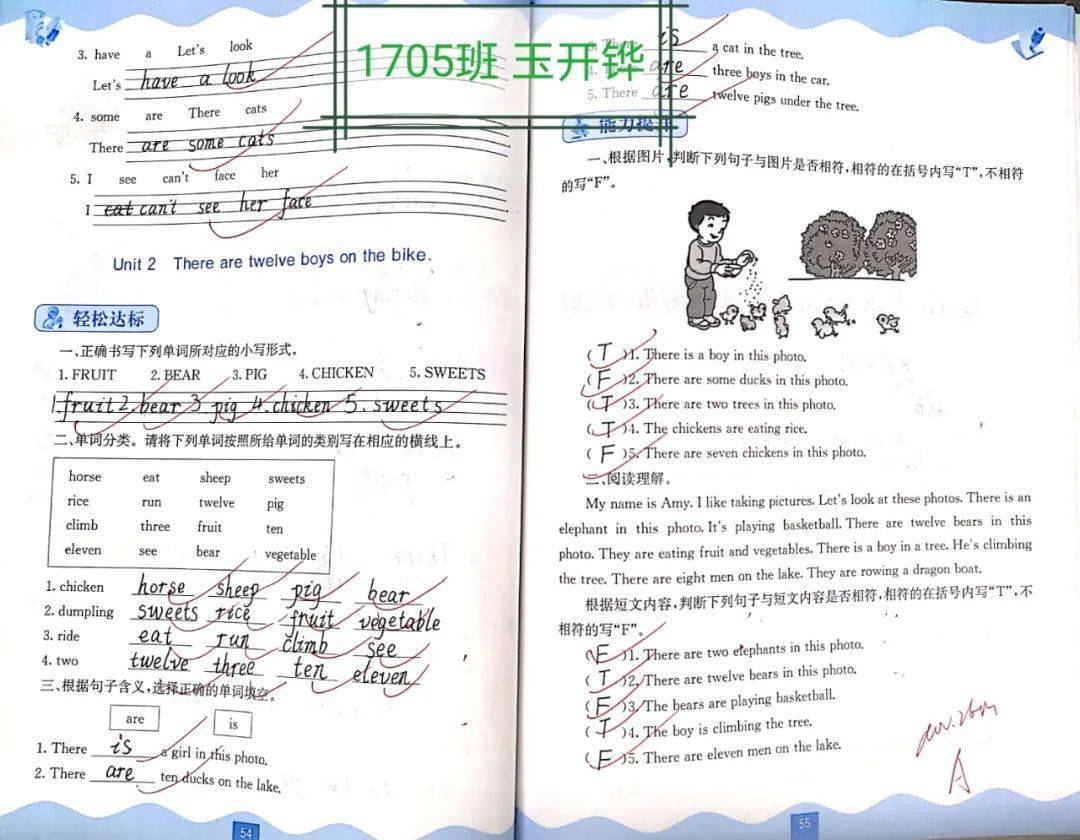 3. have a Let's look
Let's have a look
4. some are There cats
There are some cats
5. I see can't face her
I cat can't see her face
Unit 2 There are twelve boys on the bike.
轻松达标
一、正确书写下列单词所对应的小写形式。
1. FRUIT 2. BEAR 3. PIG 4. CHICKEN 5. SWEETS
1.fruit 2.bear 3 pig 4.chicken 5. sweets
二、单词分类。请将下列单词按照所给单词的类别写在相应的横线上。
horse eat sheep sweets
rice run twelve pig
climb three fruit ten
eleven see bear vegetable
1. chicken horse sheep pig bear
2. dumpling sweets rice fruit vegetable
3. ride eat run climb see
4. two twelve three ten eleven
三、根据句子含义,选择正确的单词填空。
are is
1. There is a girl in this photo.
2. There are ten ducks on the lake.
54
1705班 玉开铧
3. There is a cat in the tree.
4. There are three boys in the car.
5. There are twelve pigs under the tree.
能力提升
一、根据图片,判断下列句子与图片是否相符,相符的在括号内写“T”,不相符
的写“F”。
(T)1. There is a boy in this photo.
(F)2. There are some ducks in this photo.
(T)3. There are two trees in this photo.
(T)4. The chickens are eating rice.
(F)5. There are seven chickens in this photo.
二、阅读理解。
My name is Amy. I like taking pictures. Let's look at these photos. There is an
elephant in this photo. It's playing basketball. There are twelve bears in this
photo. They are eating fruit and vegetables. There is a boy in a tree. He's climbing
the tree. There are eight men on the lake. They are rowing a dragon boat.
根据短文内容,判断下列句子与短文内容是否相符,相符的在括号内写“T”,不
相符的写“F”。
(F)1. There are two elephants in this photo.
(T)2. There are twelve bears in this photo.
(F)3. The bears are playing basketball.
(T)4. The boy is climbing the tree.
(F)5. There are eleven men on the lake.
A
55